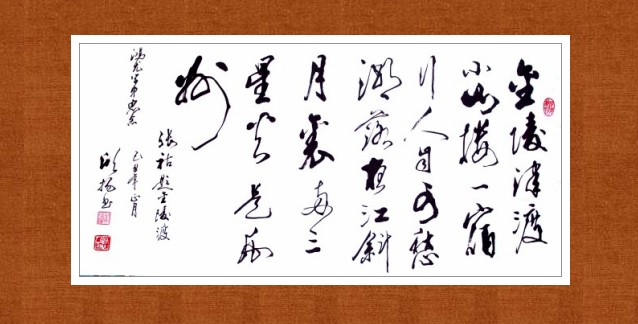 金陵津渡
小山楼一宿
行人自可愁
潮落夜江斜
月裏两三
星火是瓜
州
张祜题金陵渡
乙丑年正月